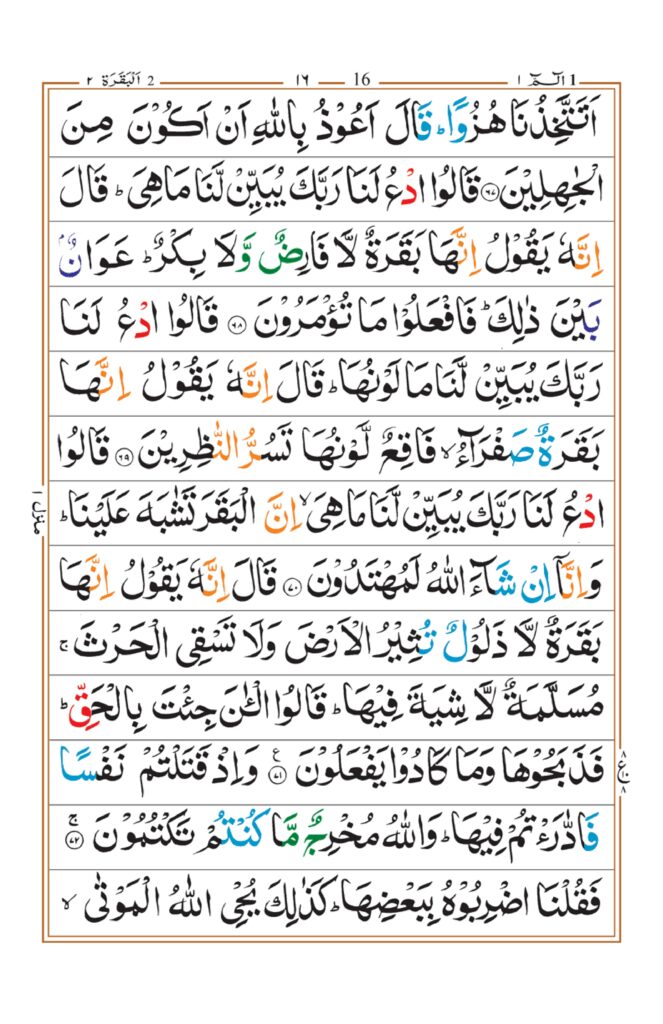 2 اَلْبَقَرَة ٢ ١٦ 16 1 الٓمّٓ ١
اَتَتَّخِذُنَا هُزُوًا ؕ قَالَ اَعُوْذُ بِاللّٰهِ اَنْ اَكُوْنَ مِنَ
الْجٰهِلِيْنَ ۝٦٧ قَالُوا ادْعُ لَنَا رَبَّكَ يُبَيِّنْ لَّنَا مَا هِىَ ؕ قَالَ
اِنَّهٗ يَقُوْلُ اِنَّهَا بَقَرَةٌ لَّا فَارِضٌ وَّلَا بِكْرٌ ؕ عَوَانٌۢ
بَيْنَ ذٰلِكَ ؕ فَافْعَلُوْا مَا تُؤْمَرُوْنَ ۝٦٨ قَالُوا ادْعُ لَنَا
رَبَّكَ يُبَيِّنْ لَّنَا مَا لَوْنُهَا ؕ قَالَ اِنَّهٗ يَقُوْلُ اِنَّهَا
بَقَرَةٌ صَفْرَآءُ ۙ فَاقِعٌ لَّوْنُهَا تَسُرُّ النّٰظِرِيْنَ ۝٦٩ قَالُوا
ادْعُ لَنَا رَبَّكَ يُبَيِّنْ لَّنَا مَا هِىَ ۙ اِنَّ الْبَقَرَ تَشٰبَهَ عَلَيْنَا ؕ
وَاِنَّاۤ اِنْ شَآءَ اللّٰهُ لَمُهْتَدُوْنَ ۝٧٠ قَالَ اِنَّهٗ يَقُوْلُ اِنَّهَا
بَقَرَةٌ لَّا ذَلُوْلٌ تُثِيْرُ الْاَرْضَ وَلَا تَسْقِى الْحَرْثَ ۚ
مُسَلَّمَةٌ لَّا شِيَةَ فِيْهَا ؕ قَالُوا الْـٰٔنَ جِئْتَ بِالْحَقِّ ؕ
فَذَبَحُوْهَا وَمَا كَادُوْا يَفْعَلُوْنَ ۝٧١ ع وَاِذْ قَتَلْتُمْ نَفْسًا
فَادّٰرَءْتُمْ فِيْهَا ؕ وَاللّٰهُ مُخْرِجٌ مَّا كُنْتُمْ تَكْتُمُوْنَ ۝٧٢ ۚ
فَقُلْنَا اضْرِبُوْهُ بِبَعْضِهَا ؕ كَذٰلِكَ يُحْىِ اللّٰهُ الْمَوْتٰى ۙ
منزل ١
٨ ع ٨